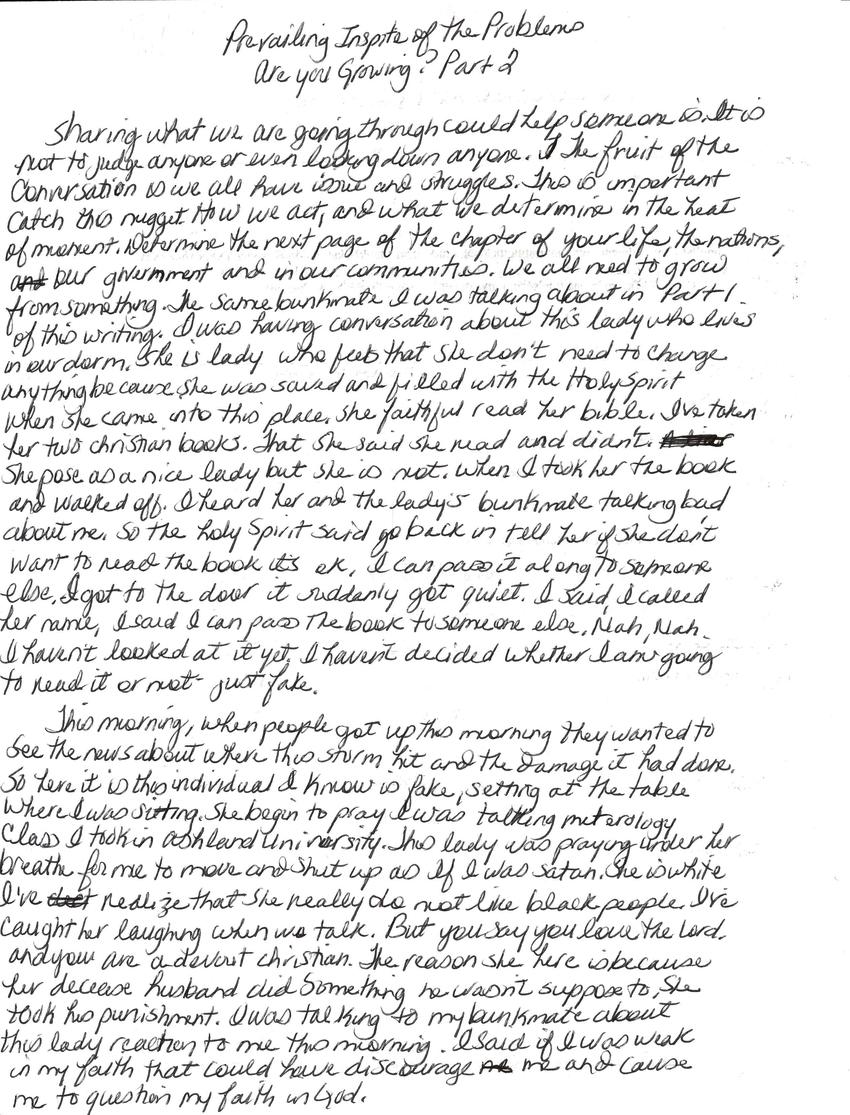 Prevailing Inspite of the Problems
Are you Growing? Part 2
Sharing what we are going through could help someone is. It is
not to judge anyone or even looking down anyone. The fruit of the
Conversation is we all have issue and struggles. This is important
Catch this nugget. How we act, and what we determine in the heat
of moment. Determine the next page of the chapter of your life, the nations,
our government and in our communities. We all need to grow
from something. The same bunkmate I was talking about in Part 1.
of this writing. I was having conversation about this lady who lives
in our dorm. She is lady who feels that she don't need to change
anything because she was saved and filled with the Holy Spirit
when she came into this place. She faithful read her bible. I've taken
her two christian books. That she said she read and didn't.
She pose as a nice lady but she is not. When I took her the book
and walked off. I heard her and the lady's bunkmate talking bad
about me. So the holy Spirit said go back in tell her if she don't
want to read the book it's ok, I can pass it along to someone
else. I got to the door it suddenly got quiet. I said, I called
her name, I said I can pass the book to someone else. Nah, Nah.
I haven't looked at it yet. I haven't decided whether I am going
to read it or not just fake.
This morning, when people got up this morning they wanted to
see the news about where this storm hit and the damage it had done.
So here it is this individual I know is fake, setting at the table
where I was sitting. She begin to pray I was talking meterology
Class I took in Ashland University. This lady was praying under her
breathe for me to move and shut up as If I was satan. She is white
I've realize that she really do not like black people. I've
caught her laughing when we talk. But you say you love the Lord.
and you are a devout christian. The reason she here is because
her decease husband did something he wasn't suppose to, She
took his punishment. I was talking to my bunkmate about
this lady reaction to me this morning. I said if I was weak
in my faith that could have discourage me and cause
me to question my faith in God.